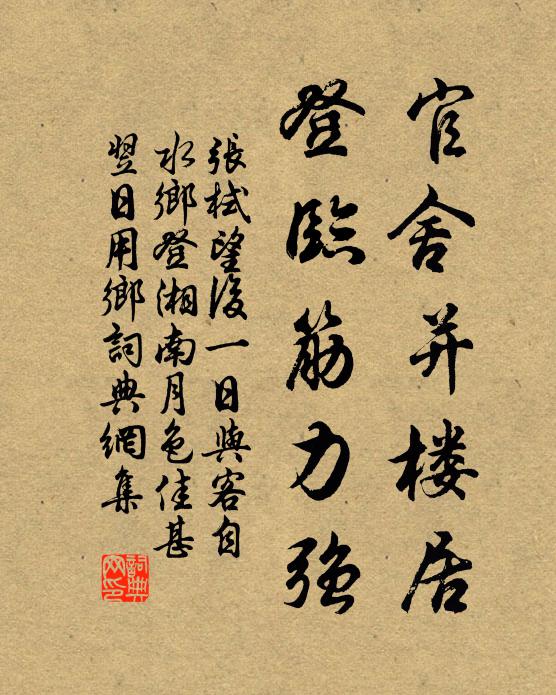 官舍并楼居
登臨筋力強
張栻望後一日與客自
水鄉登湘南月色佳甚
翌日用鄉詞典網集
詞典网印